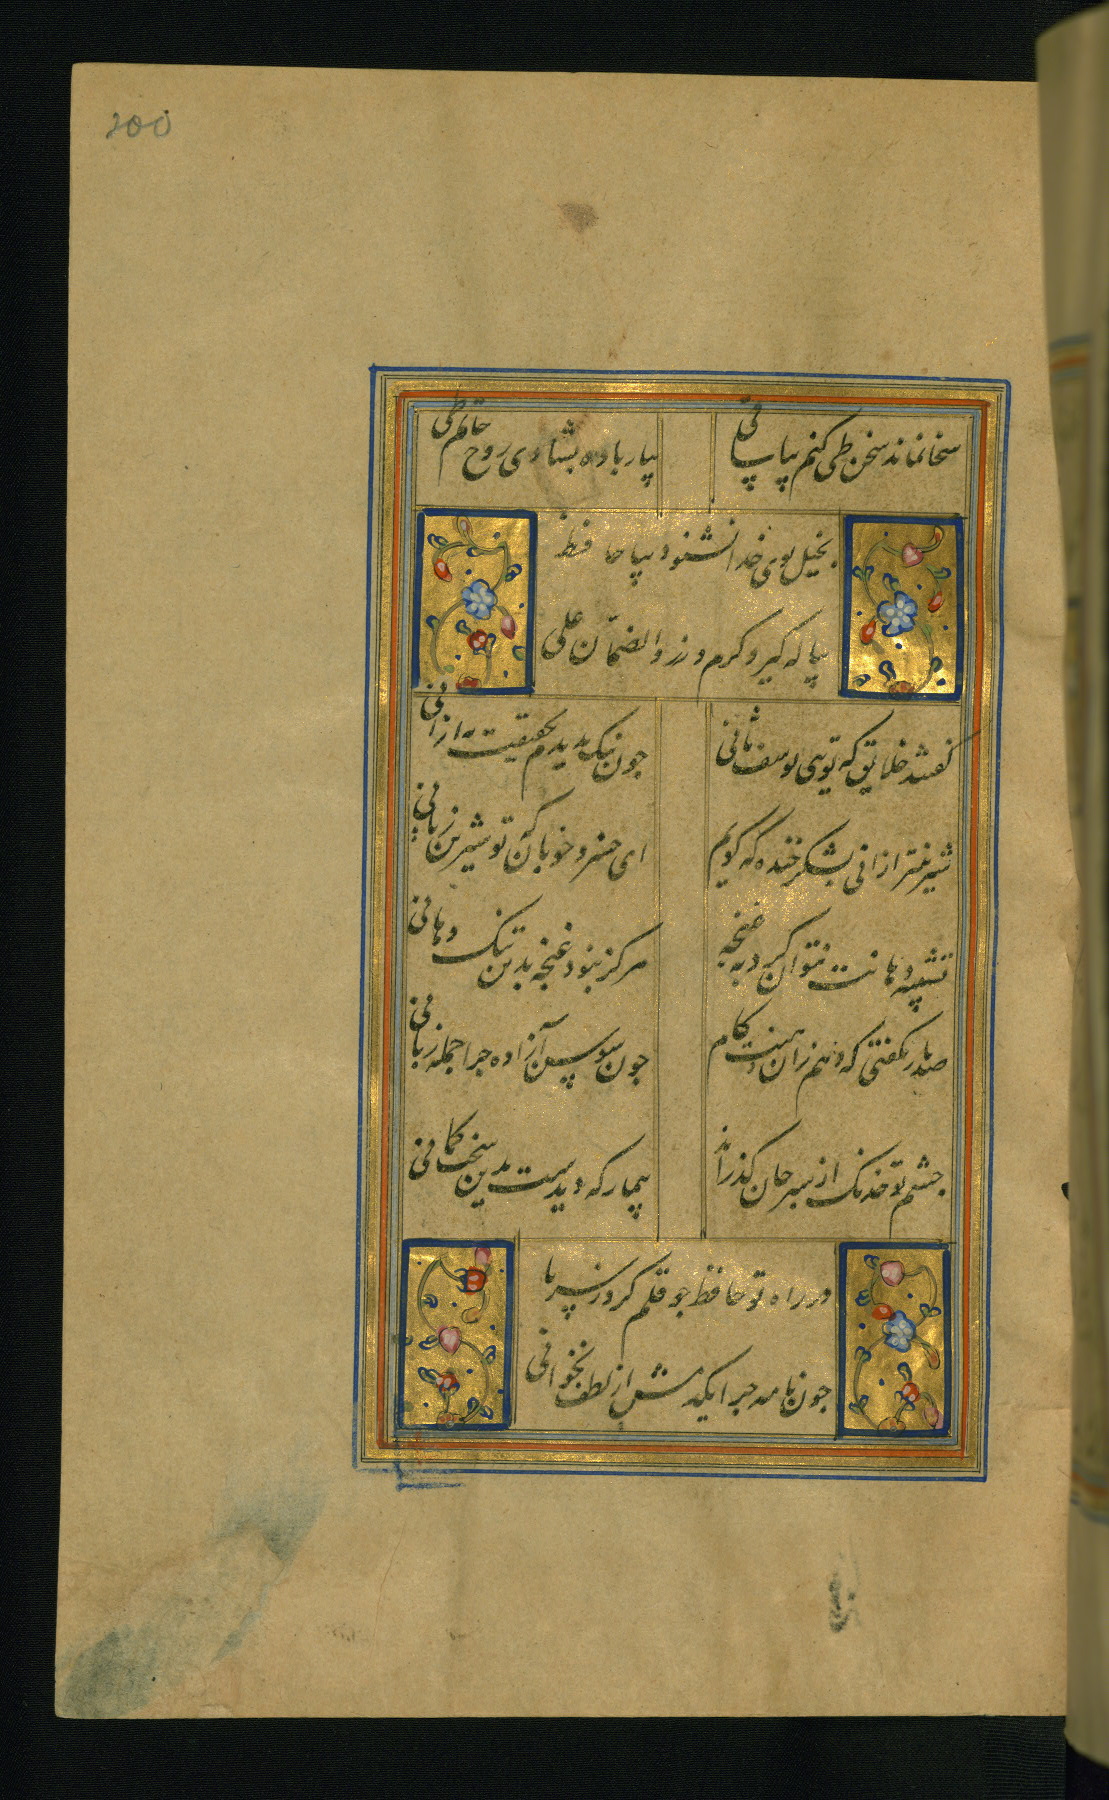 200
سخا نماند سخن طی کنم بیا ساقی
بیار باده بشادی روح حاتم طی
بخیل بوی خدا نشنود بیا حافظ
پیاله گیر و کرم ورز والضمان علی
کفتند خلایق که تویی یوسف ثانی
چون نیک بدیدم بحقیقت به ازآنی
شیرینتر ازانی بشکر خنده که گویم
ای خسرو خوبان که تو شیرین زمانی
تشبیه دهانت نتوان کرد به غنچه
هرکز نبود غنچه بدین تنک دهانی
صد بار بکفتی که دهم زان دهنت کام
چون سوسن آزاده چرا جمله زبانی
چشم تو خدنک از سپر جان گذراند
بیمار که دیدست بدین سخت کمانی
در راه تو حافظ چو قلم کرد ز سر پا
چون نامه چرا یکدمش از لطف نخوانی